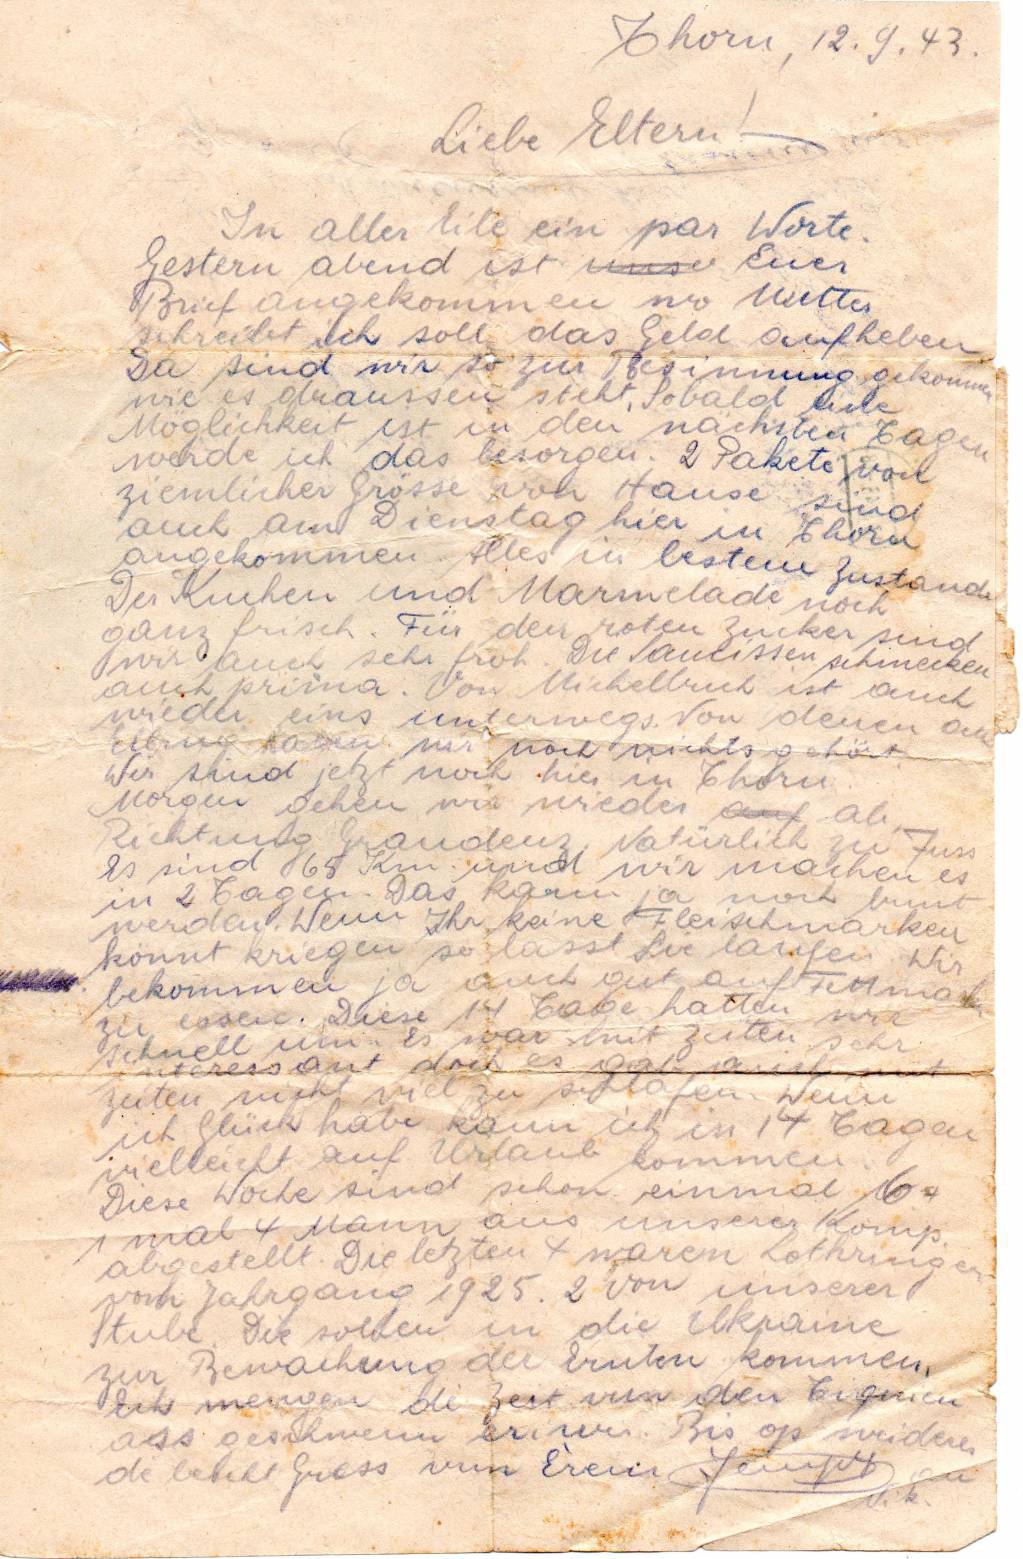 Thorn, 12.9.43.
Liebe Eltern!
In aller Eile ein par Worte.
Gestern abend ist Euer
Brief angekommen wo Mutter
schreibt ich soll das Geld aufheben
Da sind wir so zur Besinnung gekommen
wie es draussen steht. Sobald eine
Möglichkeit ist in den nächsten Tagen
werde ich das besorgen. 2 Pakete von
ziemlicher Grösse von Hause sind
auch am Dienstag hier in Thorn
angekommen. Alles in bestem Zustande
Der Kuchen und Marmelade noch
ganz frisch. Für den roten Zucker sind
wir auch sehr froh. Die Saucissen schmecken
auch prima. Von Michelbuch ist auch
wieder eins unterwegs. Von denen aus
Elbing haben wir noch nichts gehört.
Wir sind jetzt noch hier in Thorn.
Morgen gehen wir wieder auf ab,
Richtung Graudenz. Natürlich zu Fuss
Es sind 65 Km und wir machen es
in 2 Tagen. Das kann ja noch bunt
werden. Wenn Ihr keine Fleischmarken
könnt kriegen so lasst sie laufen. Wir
bekommen ja auch gut auf Fettmarken
zu essen. Diese 14 Tage hatten wir
schnell um. Es war mit zeiten sehr
interessant doch es gab auch mit
zeiten nicht viel zu schlafen. Wenn
ich Glück habe kann ich in 14 Tagen
vielleicht auf Urlaub kommen.
Diese Woche sind schon einmal 6
1 mal 4 Mann aus unserer Komp.
abgestellt. Die letzten 4 waren Lothringer
vom Jahrgang 1925. 2 von unserer
Stube. Die sollen in die Ukraine
zur Bewachung der Ernten kommen.
Ech mengen de Zeit vun den
ass geschwenn eriwer. Bis op weideres
de bescht Gress vun Erem Jempy